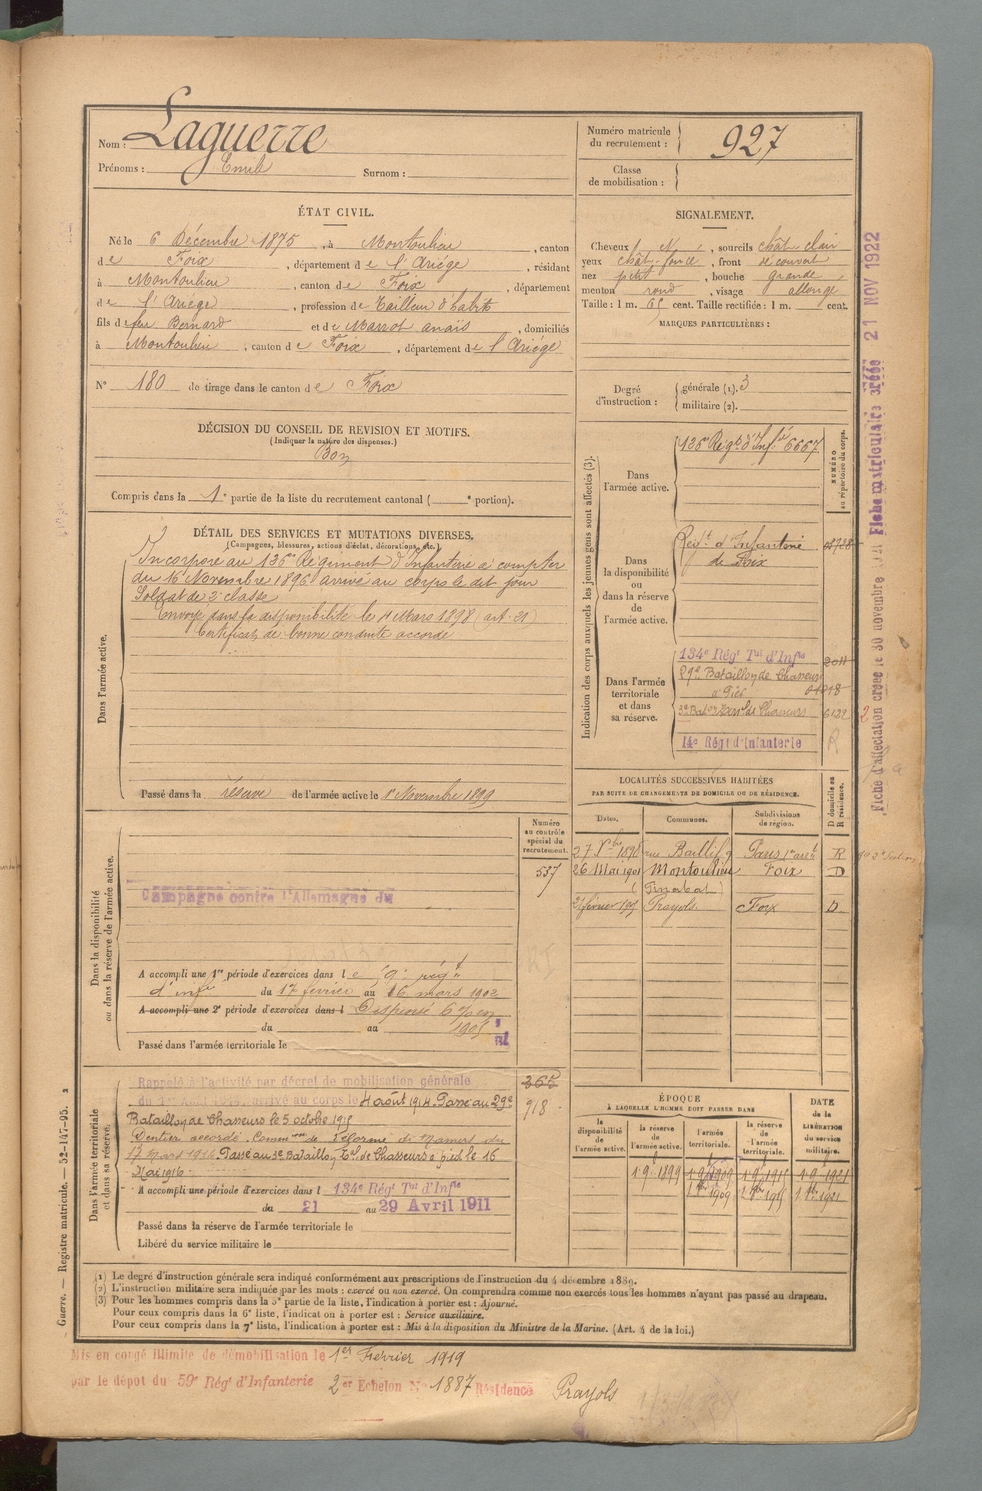 Nom : Laguerre
Prénoms : Emile Surnom :
Numéro matricule du recrutement : 927
Classe de mobilisation :
ÉTAT CIVIL.
Né le 6 Décembre 1875, à Montoulieu, canton
de Foix, département de l'Ariége, résidant
à Montoulieu, canton de Foix, département
de l'Ariége, profession de Tailleur d'habits
fils de feu Bernard et de Marrot anaïs, domiciliés
à Montoulieu, canton de Foix, département de l'Ariége
N° 180 de tirage dans le canton de Foix
DÉCISION DU CONSEIL DE REVISION ET MOTIFS.
(Indiquer la nature des dispenses.)
Bon
Compris dans la 1e partie de la liste du recrutement cantonal ( e portion).
SIGNALEMENT.
Cheveux N, sourcils chât clair
yeux chât. foncé, front découvert
nez petit, bouche grande
menton rond, visage allongé
Taille : 1 m. 65 cent. Taille rectifiée : 1 m. cent.
MARQUES PARTICULIÈRES :
Degré d'instruction : générale (1). 3
militaire (2).
DÉTAIL DES SERVICES ET MUTATIONS DIVERSES.
(Campagnes, blessures, actions d'éclat, décorations, etc.)
Dans l'armée active.
Incorporé au 136e Régiment d'Infanterie à compter
du 16 Novembre 1896 arrivé au corps le dit jour
Soldat de 2e classe
Envoyé dans la disponibilité le 4 Mars 1898 (art. 21)
Certificat de bonne conduite accordé
Passé dans la réserve de l'armée active le 1er Novembre 1899
Indication des corps auxquels les jeunes gens sont affectés (3).
NUMÉRO au répertoire du corps.
Dans l'armée active.
136e Régt d'Infie 6667
Dans la disponibilité ou dans la réserve de l'armée active.
Régt d'Infanterie
de Foix
Dans l'armée territoriale et dans sa réserve.
134e Régt Tal d'Infie 2011
29e Bataillon de Chasseurs
à Pied
3e Baton Terrial de Chasseurs
14e Régt d'Infanterie R
LOCALITÉS SUCCESSIVES HABITÉES
PAR SUITE DE CHANGEMENTS DE DOMICILE OU DE RÉSIDENCE.
Dates. Communes. Subdivisions de région. D domicile ou R résidence.
rue Baillif 9 Paris 1er arrt R
26 Mai 1901 Montoulieu Foix D
(Ginabat)
février 1907 Prayols Foix D
Numéro au contrôle spécial du recrutement.
537
Dans la disponibilité ou dans la réserve de l'armée active.
Campagne contre l'Allemagne du
A accompli une 1re période d'exercices dans le 59e régt
d'infie du 17 février au 16 mars 1902
A accompli une 2e période d'exercices dans l Dispensé
du au 1905
Passé dans l'armée territoriale le
Dans l'armée territoriale et dans sa réserve.
Rappelé à l'activité par décret de mobilisation générale
du 1er Août 1914, arrivé au corps le 4 août 1914. Passé au 29e
Bataillon de Chasseurs le 5 octobre 1915
Dentier accordé. Common de Réforme de Mamers du
17 Mars 1916. Passé au 3e Bataillon Tal de Chasseurs à pied le 16
Mai 1916
A accompli une période d'exercices dans l 134e Régt Tal d'Infie
du 21 au 29 Avril 1911
Passé dans la réserve de l'armée territoriale le
Libéré du service militaire le
365
918
ÉPOQUE
À LAQUELLE L'HOMME DOIT PASSER DANS
la disponibilité de l'armée active. la réserve de l'armée active. l'armée territoriale. la réserve de l'armée territoriale.
DATE de la LIBÉRATION du service militaire.
1.9.1899 1.9.1909 1.9.1915 1.9.1921
1.9bre 1909 1.9bre 1915 1.9bre 1921
(1) Le degré d'instruction générale sera indiqué conformément aux prescriptions de l'instruction du 4 décembre 1889.
(2) L'instruction militaire sera indiquée par les mots : exercé ou non exercé. On comprendra comme non exercés tous les hommes n'ayant pas passé au drapeau.
(3) Pour les hommes compris dans la 5e partie de la liste, l'indication à porter est : Ajourné.
Pour ceux compris dans la 6e liste, l'indication à porter est : Service auxiliaire.
Pour ceux compris dans la 7e liste, l'indication à porter est : Mis à la disposition du Ministre de la Marine. (Art. 4 de la loi.)
Guerre. — Registre matricule. — 52-147-95. 2
Mis en congé illimité de démobilisation le 1er Fevrier 1919
par le dépôt du 59e Régt d'Infanterie 2er Echelon N° 1887 Résidence Prayols
Fiche d'affectation créée le 30 novembre
Fiche matriculaire créée 21 NOV 1922